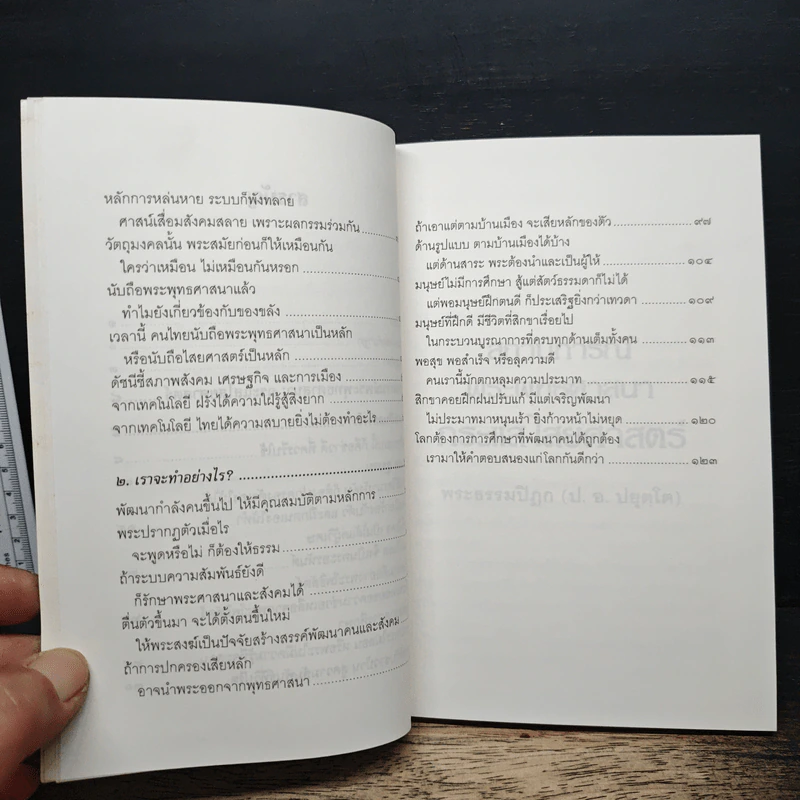 หลักการหล่นหาย ระบบก็พังทลาย
ศาสน์เสื่อมสังคมสลาย เพราะผลกรรมร่วมกัน
วัตถุมงคลนั้น พระสมัยก่อนก็ให้เหมือนกัน
ใครว่าเหมือน ไม่เหมือนกันหรอก
นับถือพระพุทธศาสนาแล้ว
ทำไมยังเกี่ยวข้องกับของขลัง
เวลานี้ คนไทยนับถือพระพุทธศาสนาเป็นหลัก
หรือนับถือไสยศาสตร์เป็นหลัก
ดัชนีชี้สภาพสังคม เศรษฐกิจ และการเมือง
จากเทคโนโลยี ฝรั่งได้ความใฝ่รู้สู้สิ่งยาก
จากเทคโนโลยี ไทยได้ความสบายยิ่งไม่ต้องทำอะไร
๒. เราจะทำอย่างไร?
พัฒนากำลังคนขึ้นไป ให้มีคุณสมบัติตามหลักการ
พระปรากฏตัวเมื่อไร
จะพูดหรือไม่ ก็ต้องให้ธรรม
ถ้าระบบความสัมพันธ์ยังดี
ก็รักษาพระศาสนาและสังคมได้
ตื่นตัวขึ้นมา จะได้ตั้งตนขึ้นใหม่
ให้พระสงฆ์เป็นปัจจัยสร้างสรรค์พัฒนาคนและสังคม
ถ้าการปกครองเสียหลัก
อาจนำพระออกจากพุทธศาสนา
ถ้าเอาแต่ตามบ้านเมือง จะเสียหลักของตัว ๙๗
ด้านรูปแบบ ตามบ้านเมืองได้บ้าง
แต่ด้านสาระ พระต้องนำและเป็นผู้ให้ ๑๐๔
มนุษย์ไม่มีการศึกษา สู้แต่สัตว์ธรรมดาก็ไม่ได้
แต่พอมนุษย์ฝึกตนดี ก็ประเสริฐยิ่งกว่าเทวดา ๑๐๙
มนุษย์ที่ฝึกดี มีชีวิตที่สิกขาเรื่อยไป
ในกระบวนบูรณาการที่ครบทุกด้านเต็มทั้งคน ๑๑๓
พอสุข พอสำเร็จ หรือลุความดี
คนเรานี้มักตกหลุมความประมาท ๑๑๕
สิกขาคอยฝึกฝนปรับแก้ มีแต่เจริญพัฒนา
ไม่ประมาทมาหนุนเร้า ยิ่งก้าวหน้าไม่หยุด ๑๒๐
โลกต้องการการศึกษาที่พัฒนาคนได้ถูกต้อง
เรามาให้คำตอบสนองแก่โลกกันดีกว่า ๑๒๓
พระธรรมปิฎก (ป. อ. ปยุตฺโต)